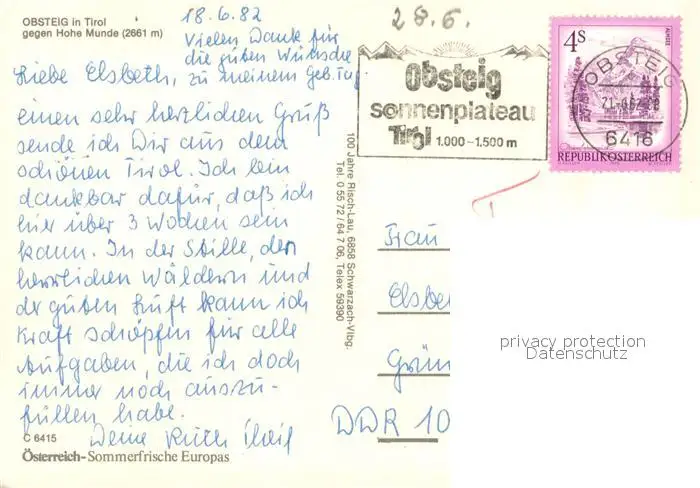 OBSTEIG in Tirol
gegen Hohe Munde (2661 m)
18.6.82
Vielen Dank für
die guten Wünsche
zu meinem Geb. Tag.
Liebe Elsbeth,
einen sehr herzlichen Gruß
sende ich Dir aus dem
schönen Tirol. Ich bin
dankbar dafür, daß ich
hier über 3 Wochen sein
kann. In der Stille, den
herrlichen Wäldern und
der guten Luft kann ich
Kraft schöpfen für alle
Aufgaben, die ich doch
immer noch auszu-
füllen habe.
Deine Ruth
C 6415
Österreich-Sommerfrische Europas
100 Jahre Risch-Lau, 6858 Schwarzach-Vlbg.
Tel. 0 55 72 / 64 7 06, Telex 59390
28.6.
Obsteig
sonnenplateau
Tirol 1.000-1.500 m
OBSTEIG
6416
4 S
ALMSEE
REPUBLIK ÖSTERREICH
Frau
Elsbe
Grün
DDR 10
privacy protection
Datenschutz